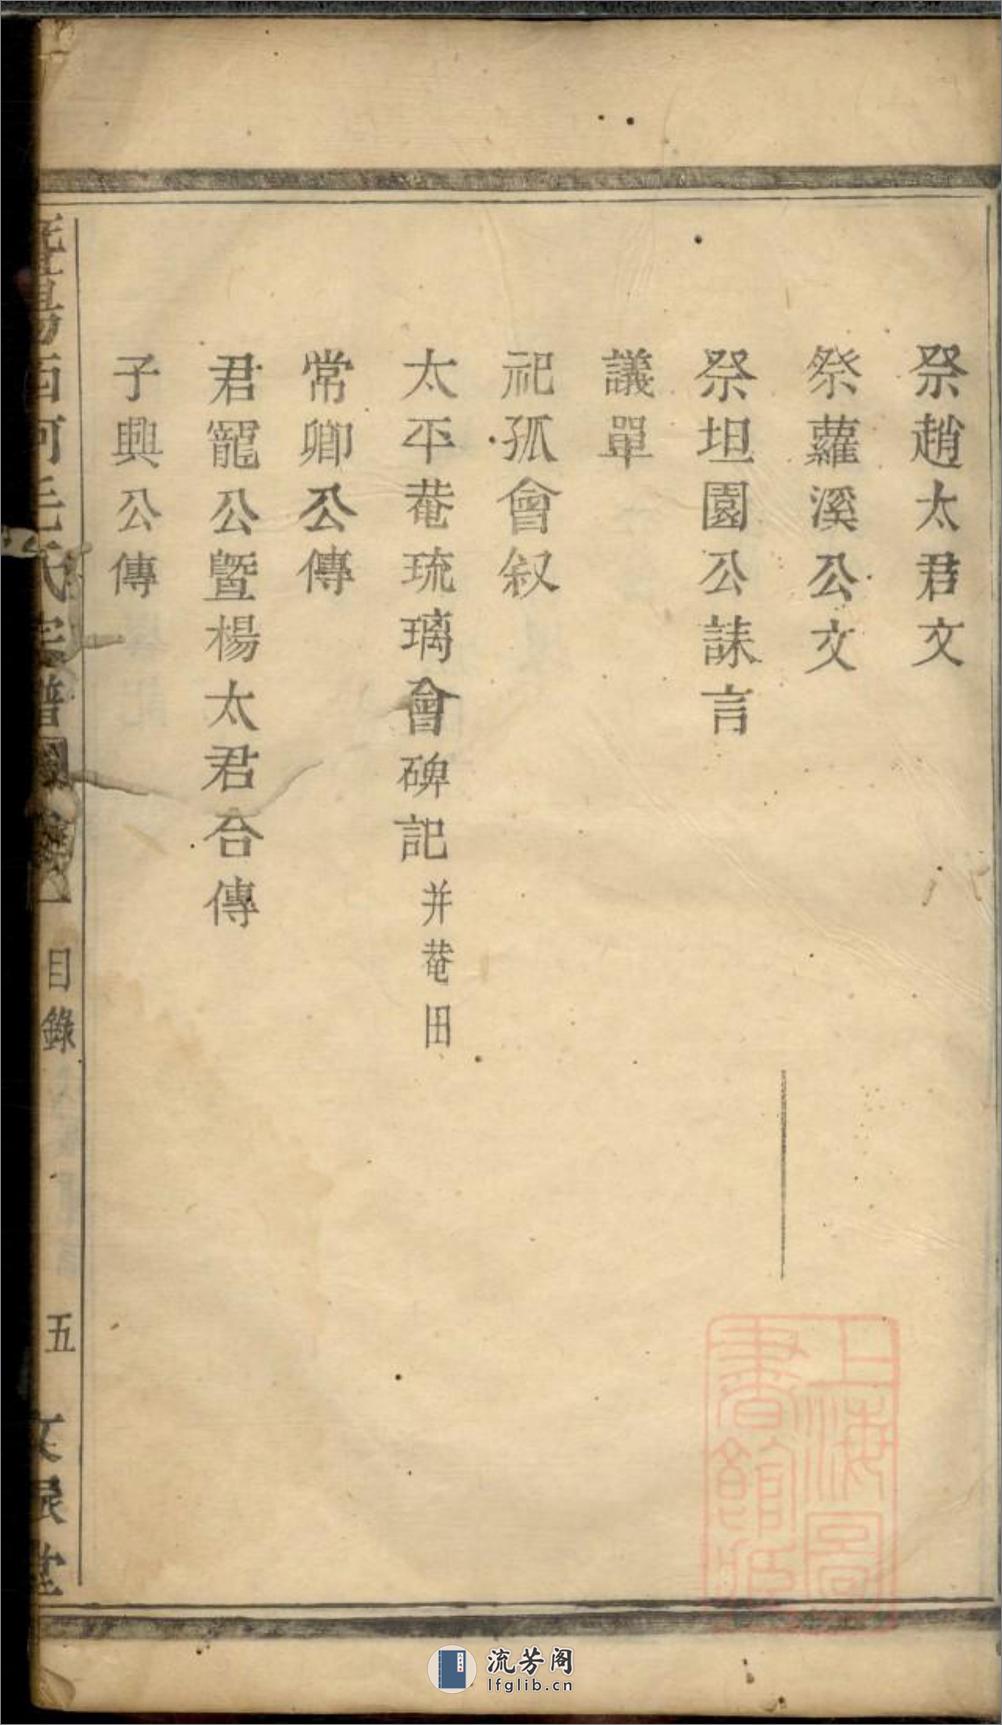 祭趙太君文
祭蘿溪公文
祭坦園公誄言
議單
祀孤會叙
太平菴琉璃會碑記并菴田
常卿公傳
君寵公暨楊太君合傳
子興公傳
暨陽西河毛氏宗譜
目錄
五
文
堂
上海圖
書館
流芳阁
lfglib.cn